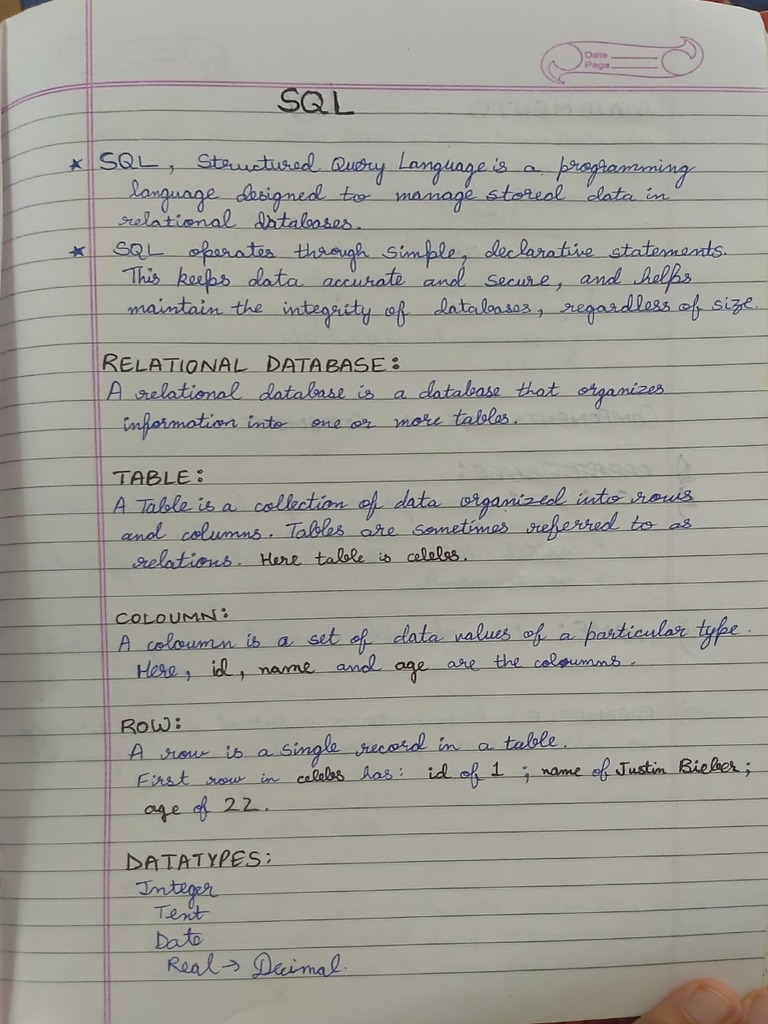 Date
Page
SQL
★ SQL, Structured Query Language is a programming
language designed to manage stored data in
relational databases.
★ SQL operates through simple, declarative statements.
This keeps data accurate and secure, and helps
maintain the integrity of databases, regardless of size.
RELATIONAL DATABASE:
A relational database is a database that organizes
information into one or more tables.
TABLE:
A Table is a collection of data organized into rows
and columns. Tables are sometimes referred to as
relations. Here table is celebs.
COLOUMN:
A coloumn is a set of data values of a particular type.
Here, id, name and age are the coloumns.
ROW:
A row is a single record in a table.
First row in celebs has: id of 1 ; name of Justin Bieber;
age of 22.
DATATYPES:
Integer
Text
Date
Real → Decimal.